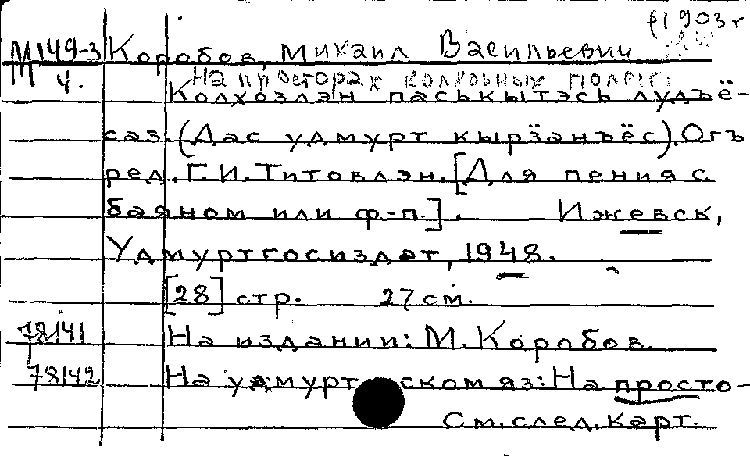 (1903г
М149-3 Коробов, Михаил Васильевич
4. На просторах колхозных полей:
Колхозлэн паськытэсь лудъё-
саз. (Дас удмурт кырӟанъёс). Отв
ред. Г.И. Титовлэн. [Для пения с
баяном или ф-п.]. Ижевск,
Удмуртгосиздат, 1948.
[28] стр. 27 см.
78141 На издании: М. Коробов.
78142 На удмуртском яз: На просто-
См. след. карт.